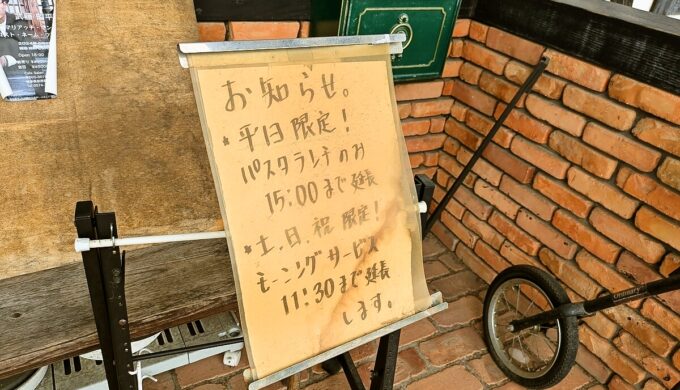 お知らせ。
* 平日限定！
パスタランチのみ
15:00まで延長
* 土.日.祝 限定！
モーニングサービス
11:30まで延長
します。
Ordinary